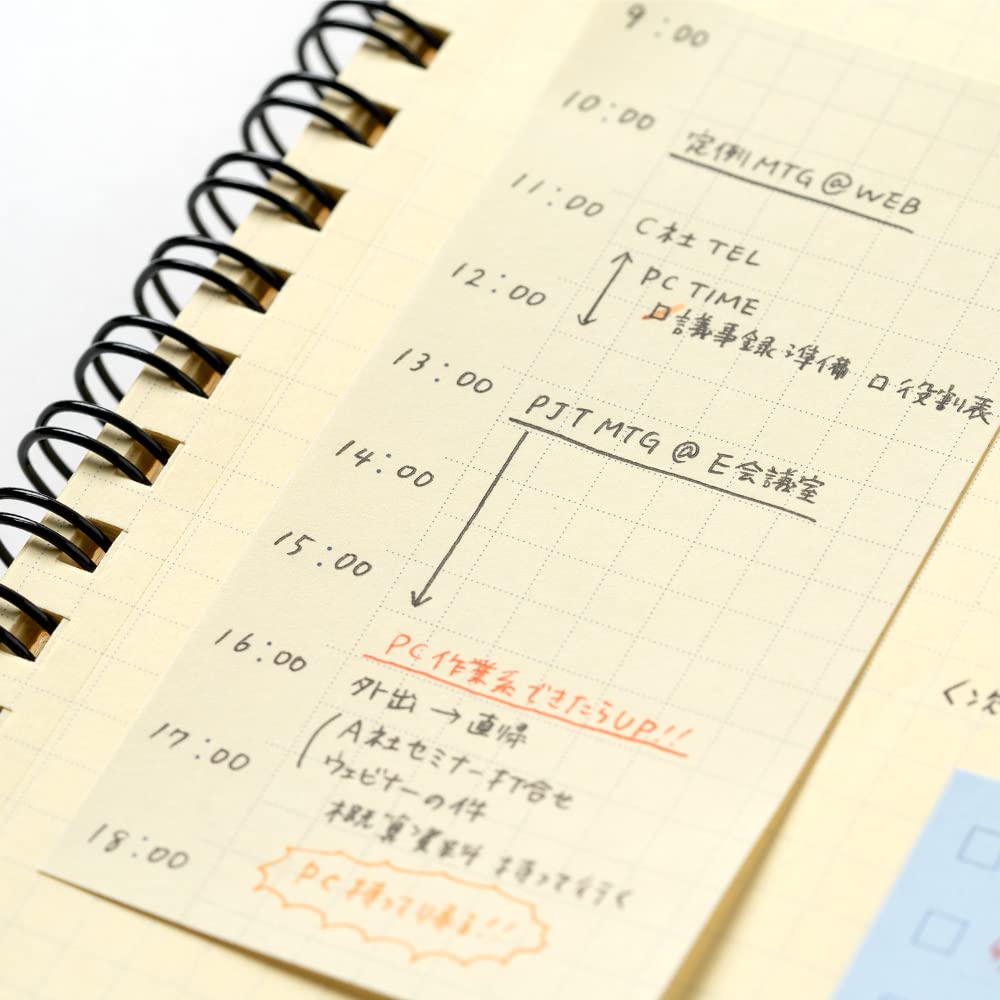 9:00
10:00
定例MTG@WEB
11:00
C社 TEL
PC TIME
12:00
□議事録準備 □役割表
13:00
PJT MTG @ E会議室
14:00
15:00
PC作業系できたらUP!!
16:00
外出→直帰
A社セミナー打合せ
17:00
ウェビナーの件
概算資料 持って行く
18:00
PC持って帰る!!
〈次